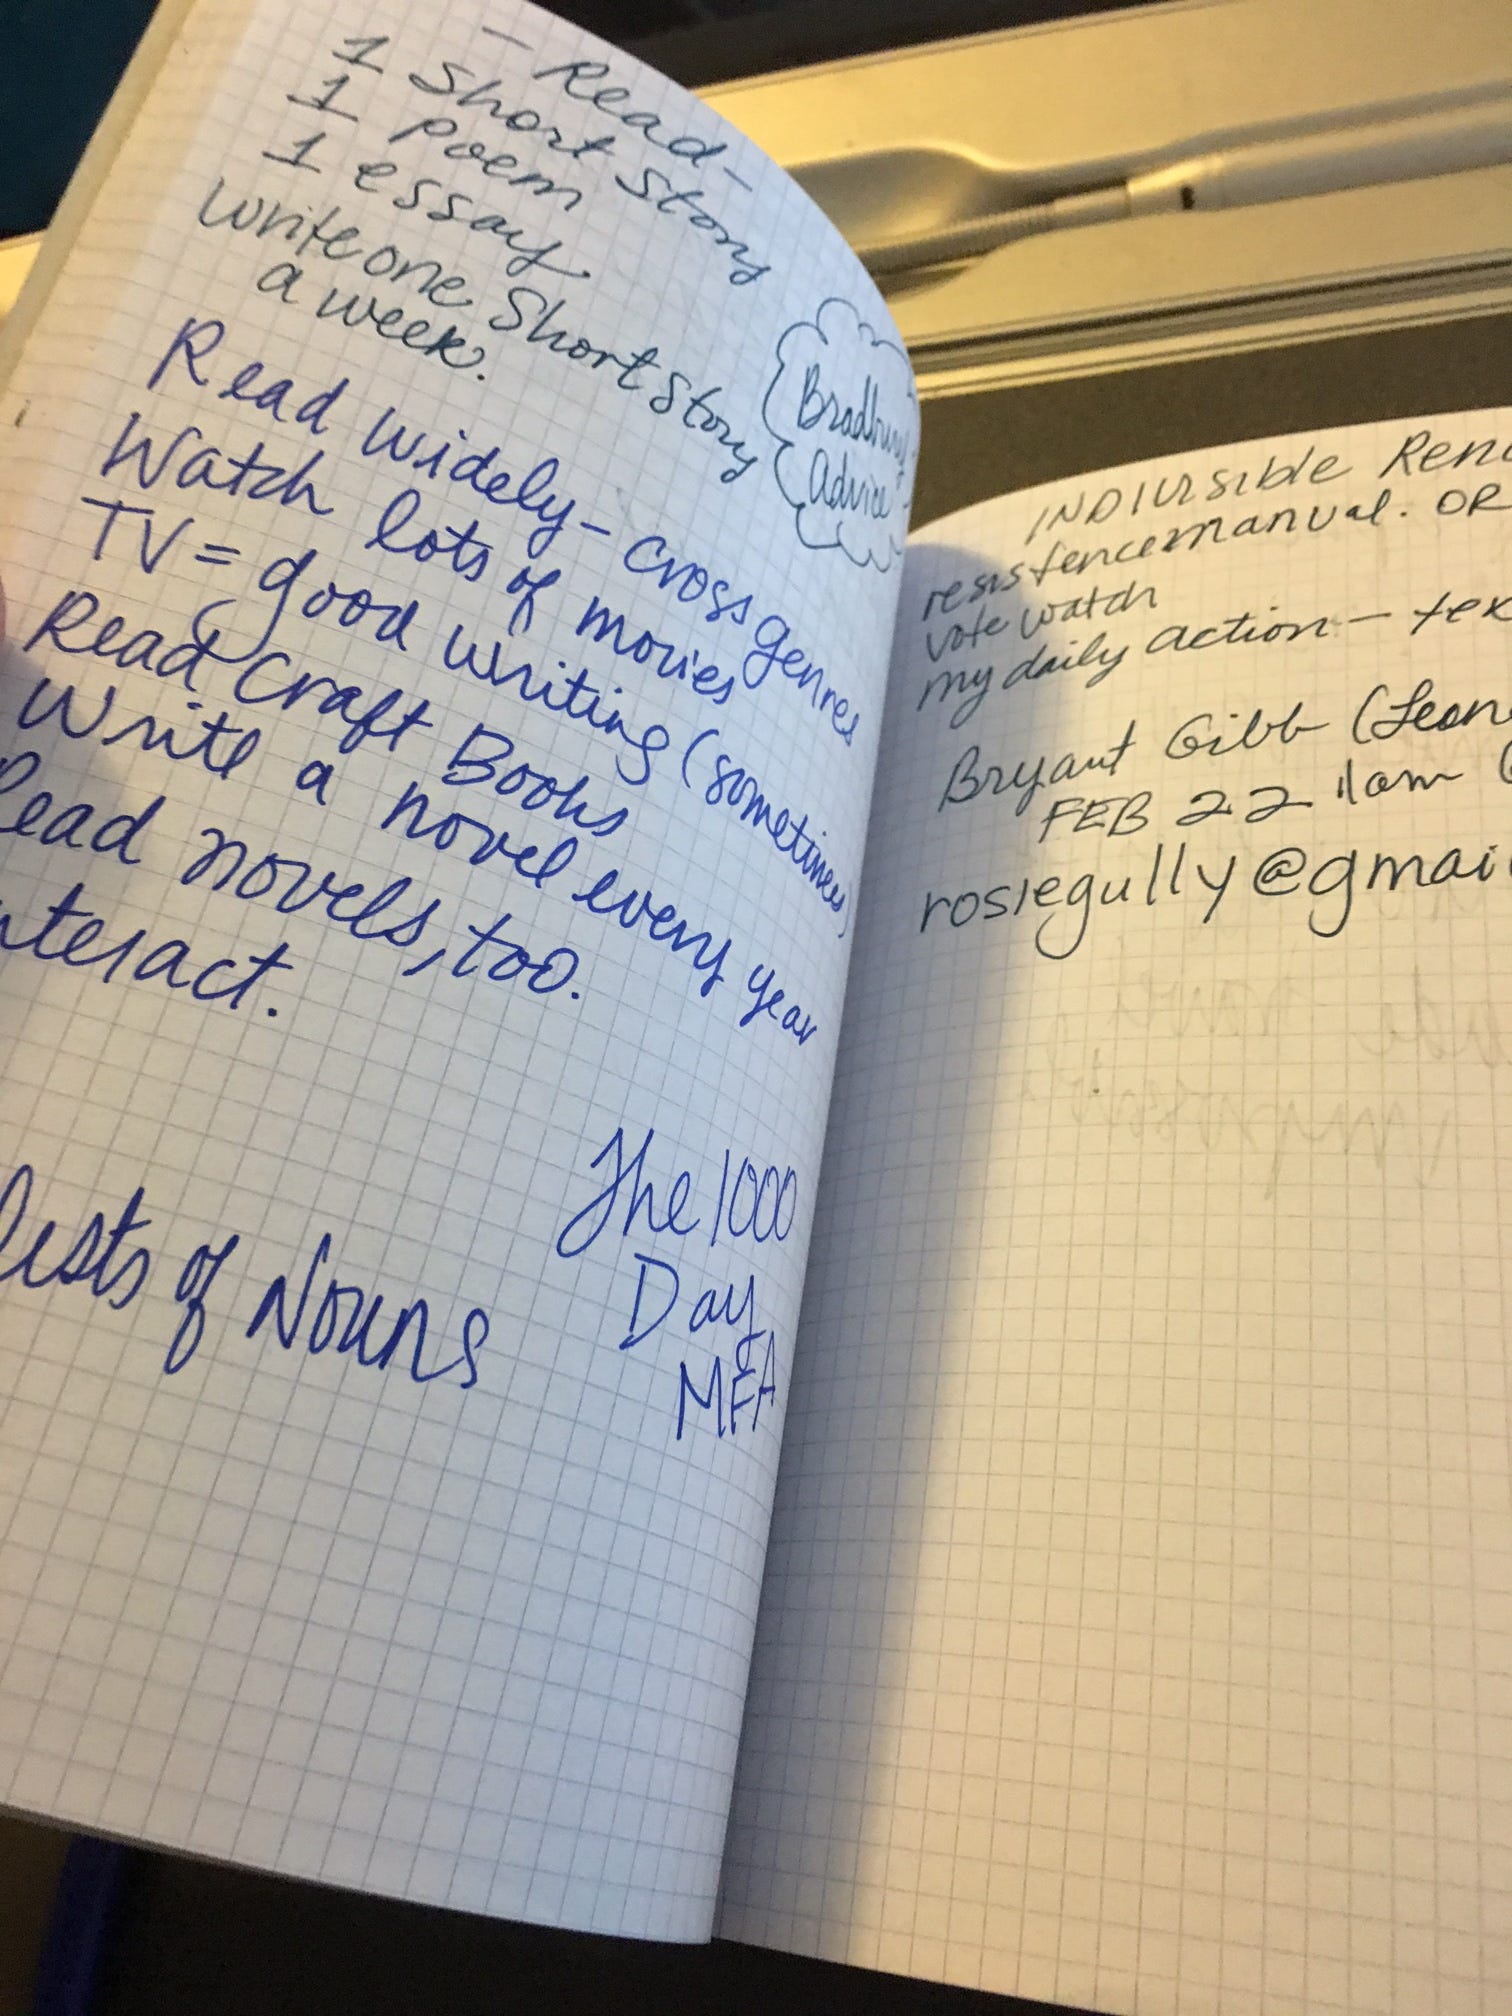 - Read -
1 Short Story
1 poem
1 essay.
Write one Short Story
a week.
Bradbury
Advice
Read widely - cross genres
Watch lots of movies
TV = good writing (sometimes)
Read Craft Books
Write a novel every year
Read novels, too.
nteract.
The 1000
Day
MFA
Lists of Nouns
INDIVISIBLE
resistencemanual. OR
vote watch
my daily action - tex
Bryant Gibb (Leon
FEB 22 11am
rosiegully@gmai